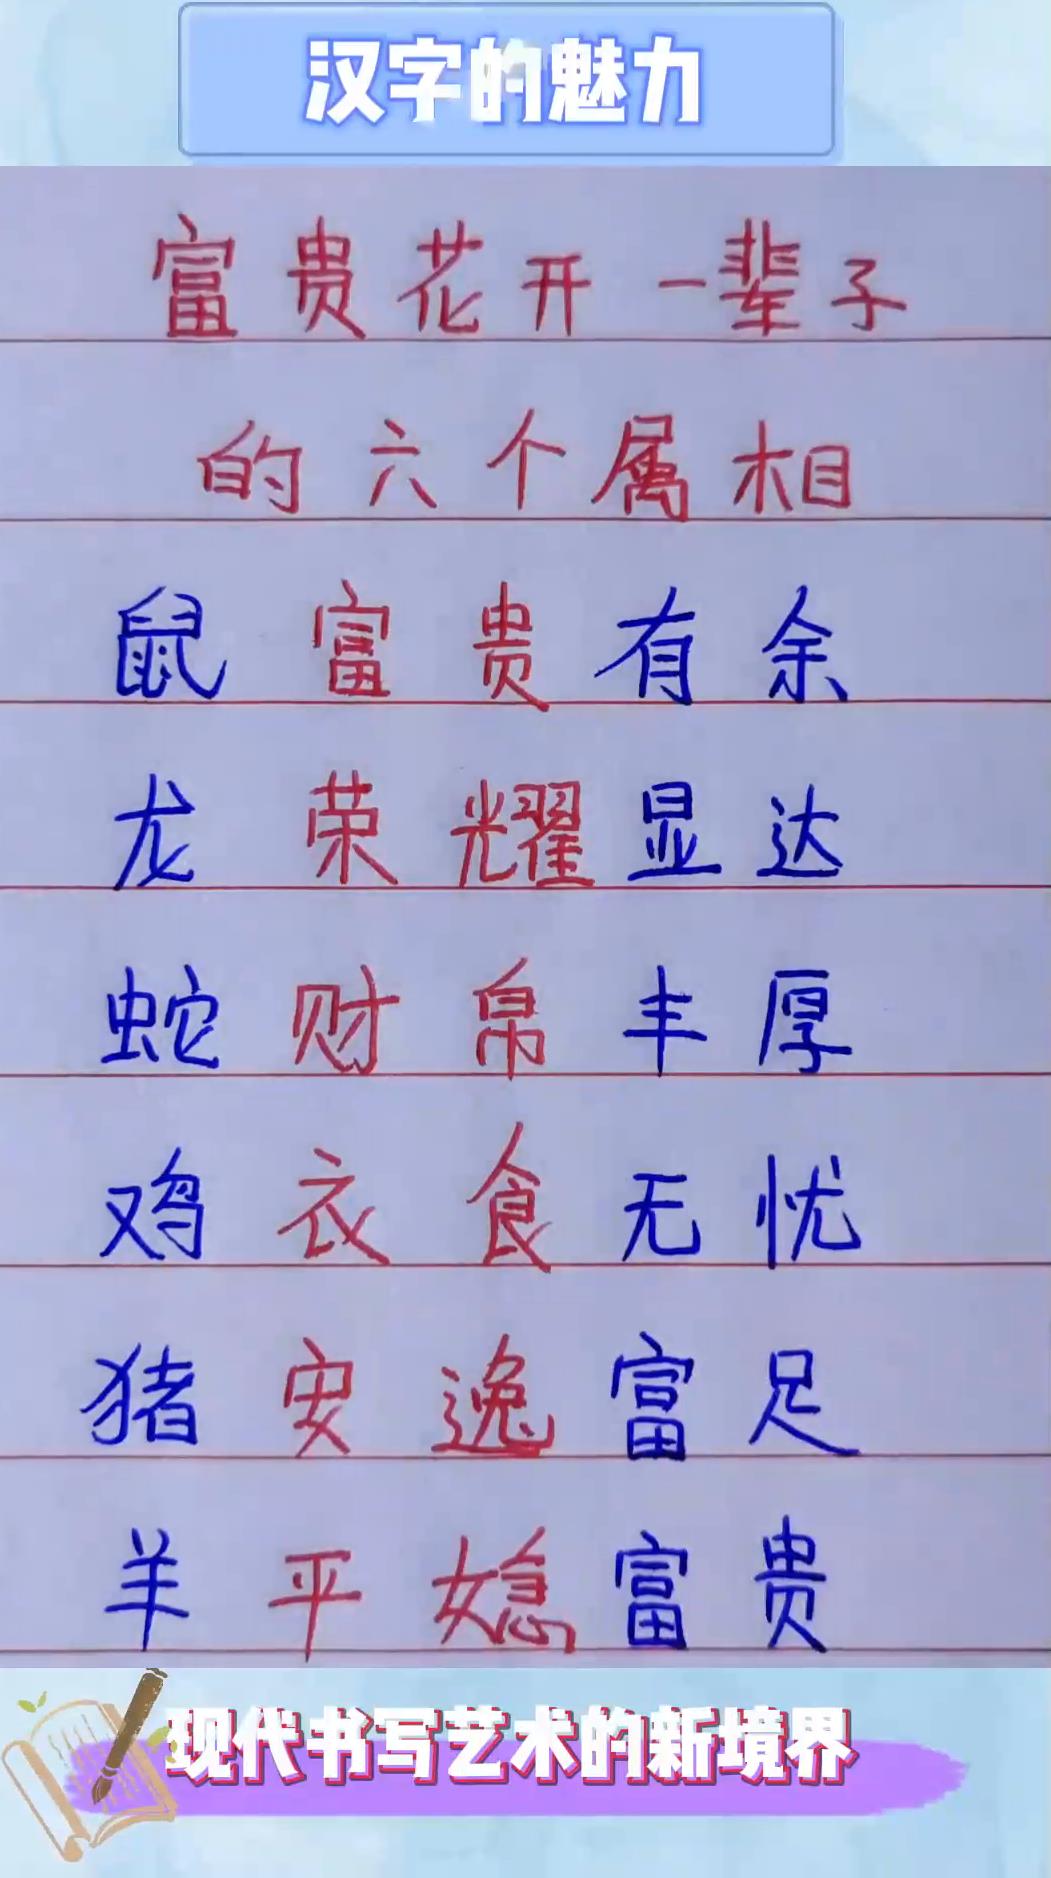 汉字的魅力
富贵花开一辈子
的六个属相
鼠 富贵有余
龙 荣耀显达
蛇 财帛丰厚
鸡 衣食无忧
猪 安逸富足
羊 平 富贵
现代书写艺术的新境界